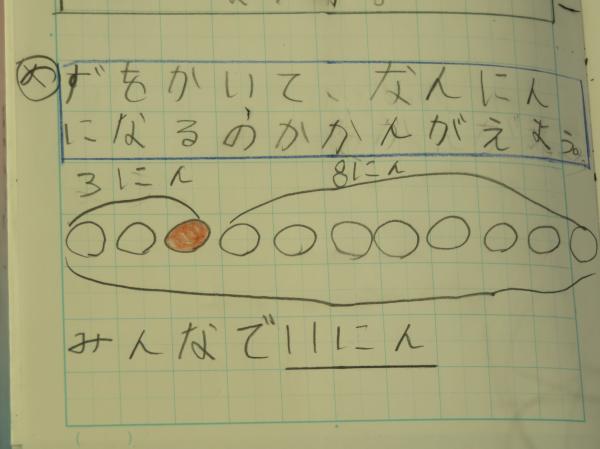 め
ずをかいて、なんにん
になるのかかんがえよう。
3にん 8にん
みんなで11にん
( )